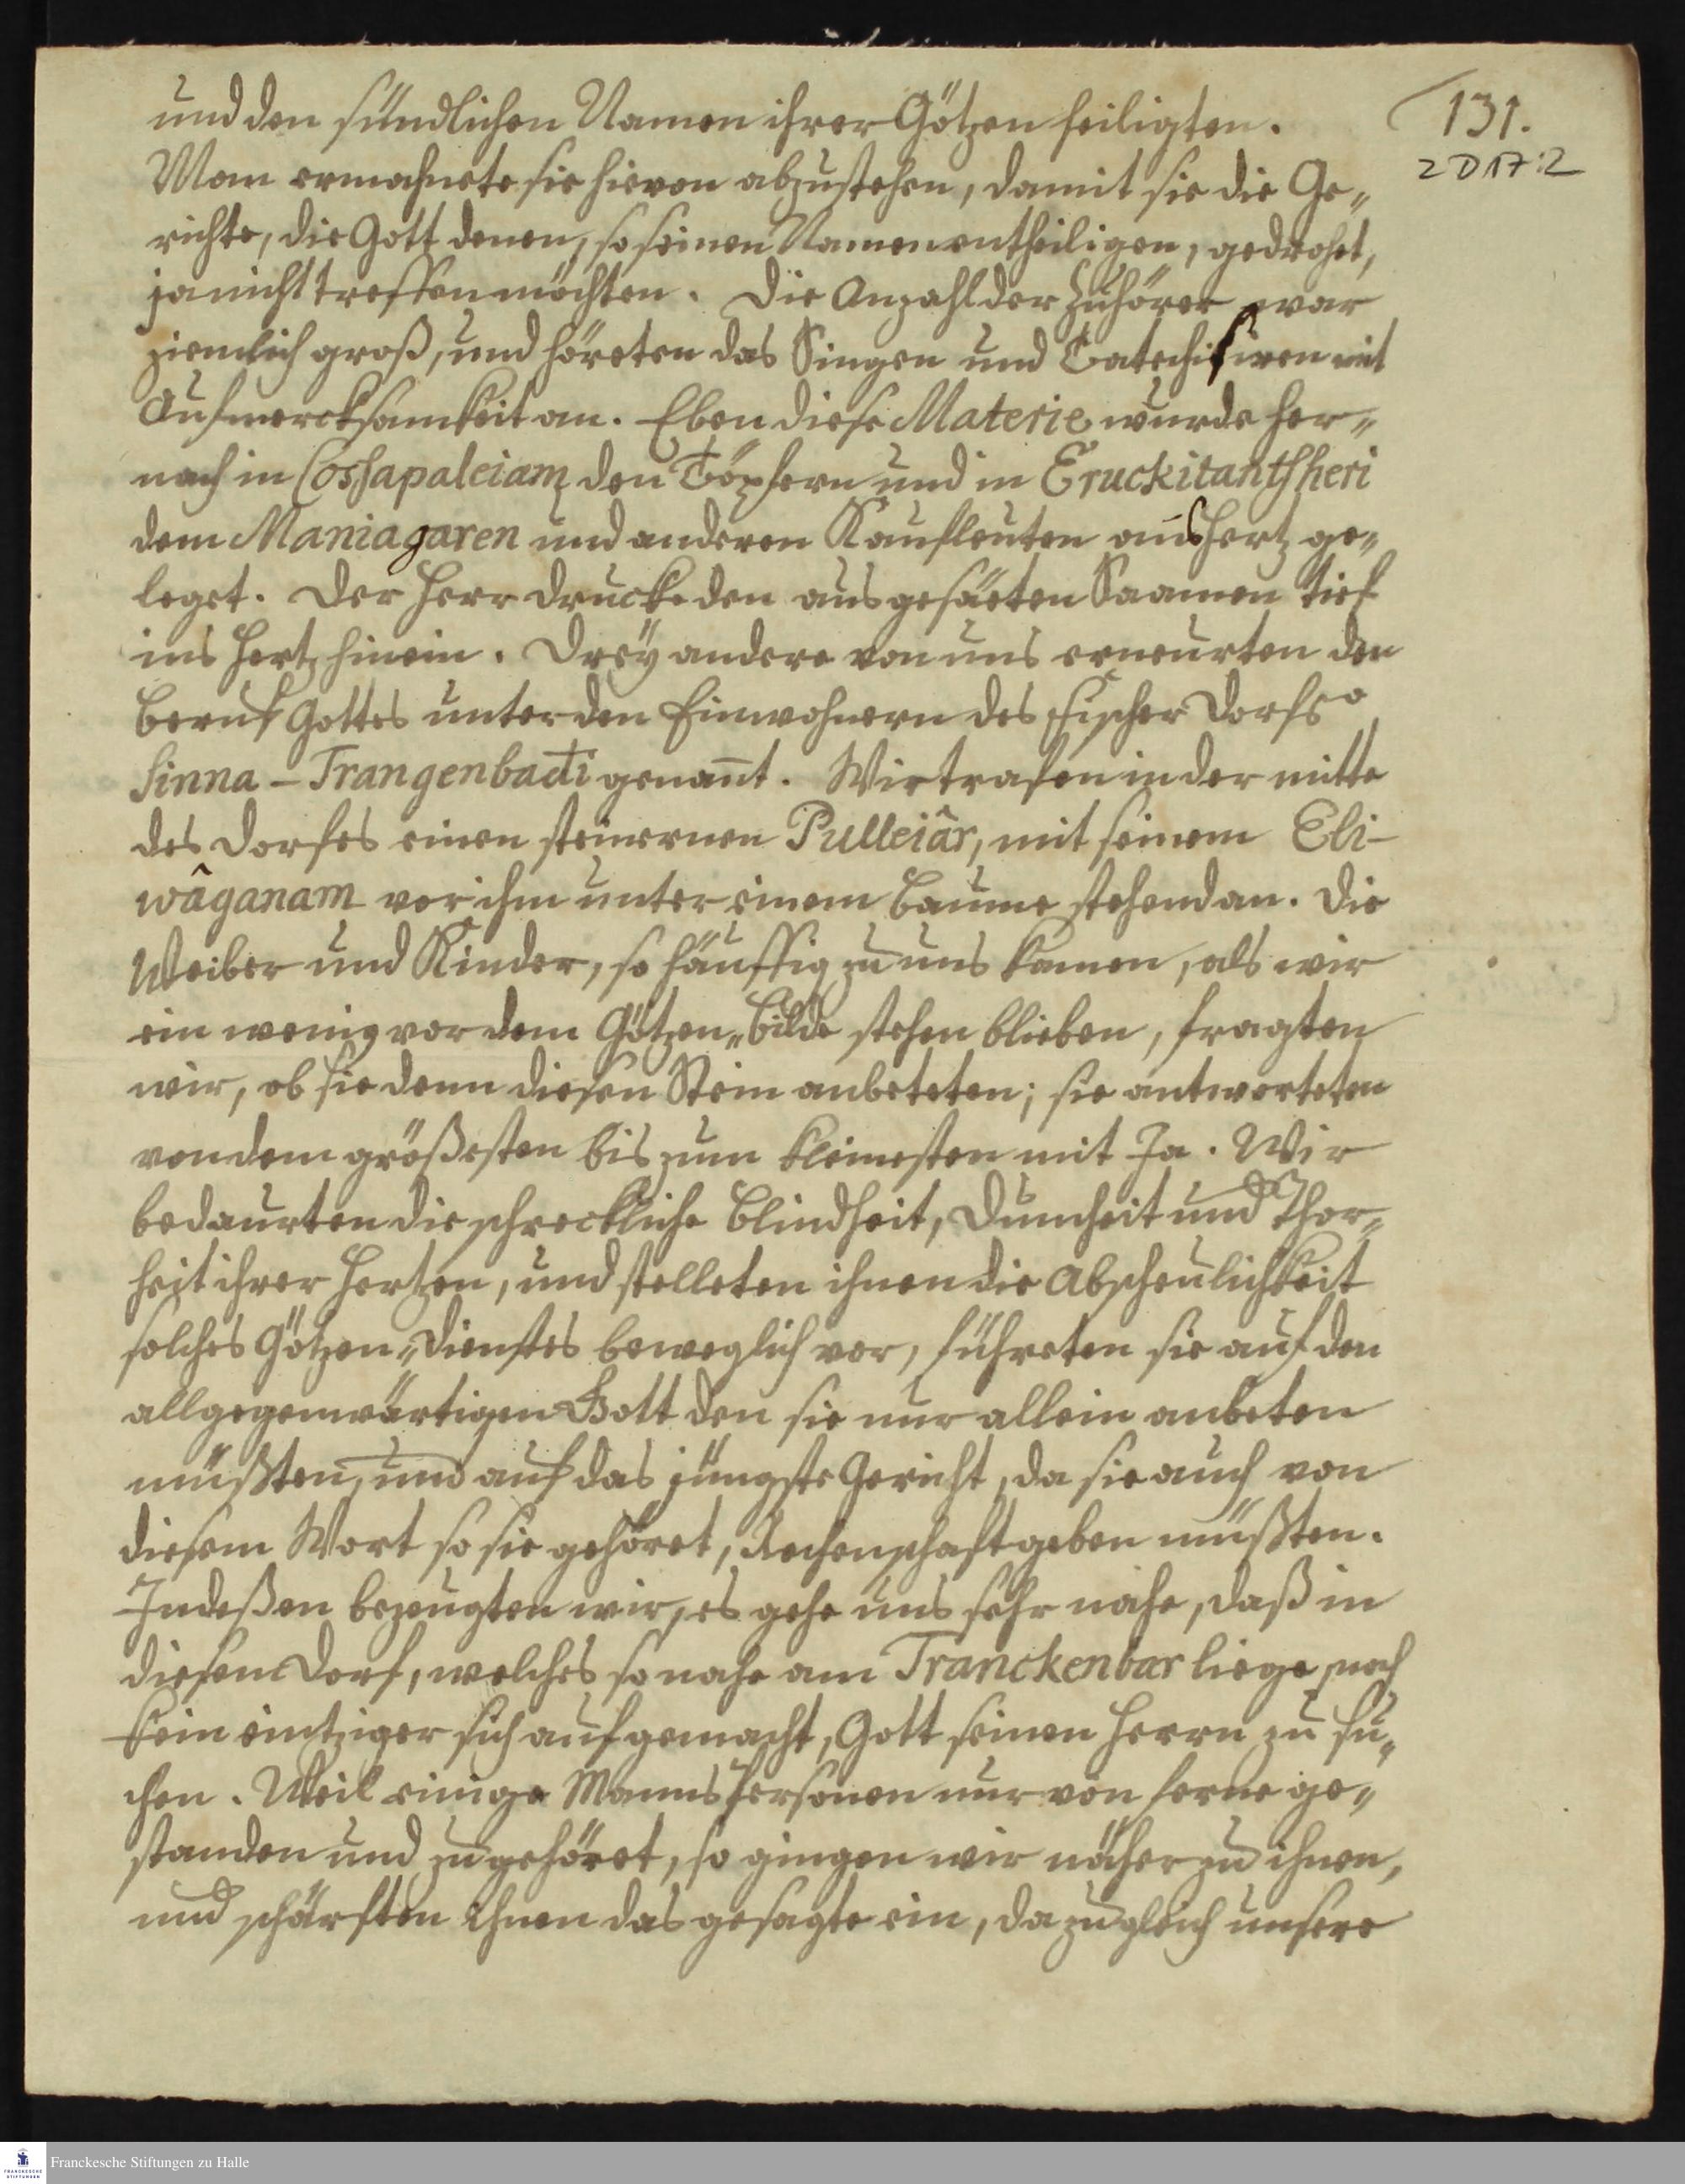 und den sündlichen Namen ihrer Götzen heiligten.
131.
2 D 17:2
Man ermahnete sie hievon abzustehen, damit sie die Ge„
richte, die Gott denen, so seinen Namen entheiligen, gedrohet,
ja nicht treffen möchten. Die Anzahl der Zuhörer war
ziemlich groß, und höreten das Singen und Catechisiren mit
Aufmercksamkeit an. Eben diese Materie wurde her„
nach in Cossapaleiam den Töpfern und in Eruckitantscheri
dem Maniagaren und anderen Kaufleuten ans Hertz ge„
leget. Der Herr drucke den ausgesäeten Saamen tief
ins Hertz hinein. Drey andere von uns erneurten den
Beruf Gottes unter den Einwohnern des Fischer Dorfs
Sinna - Trangenbadi genañt. Wir trafen in der mitte
des Dorfes einen steinernen Pulleiâr, mit seinem Eli-
wâganam vor ihm unter einem Baume stehend an. Die
Weiber und Kinder, so häuffig zu uns kamen, als wir
ein wenig vor dem Götzen„Bilde stehen blieben, fragten
wir, ob sie denn diesen Stein anbeteten; sie antworteten
von dem größesten bis zum kleinesten mit Ja. Wir
bedaurten die schreckliche Blindheit, Dumheit und Thor„
heit ihrer Hertzen, und stelleten ihnen die Abscheulichkeit
solches Götzen„Dienstes beweglich vor, führeten sie auf den
allgegenwärtigen Gott den sie nur allein anbeten
müßten, und auf das jüngste Gericht, da sie auch von
diesem Wort so sie gehöret, Rechenschaft geben müßten.
Indeßen bezeugten wir, es gehe uns sehr nahe, daß in
diesem Dorf, welches so nahe am Tranckenbar liege, noch
kein eintziger sich aufgemacht, Gott seinen Herrn zu su„
chen. Weil einige Manns Personen nur von ferne ge„
standen und zugehöret, so gingen wir näher zu ihnen,
und schärften ihnen das gesagte ein, da zugleich unsere
FRANCKESCHE
STIFTUNGEN
Franckesche Stiftungen zu Halle